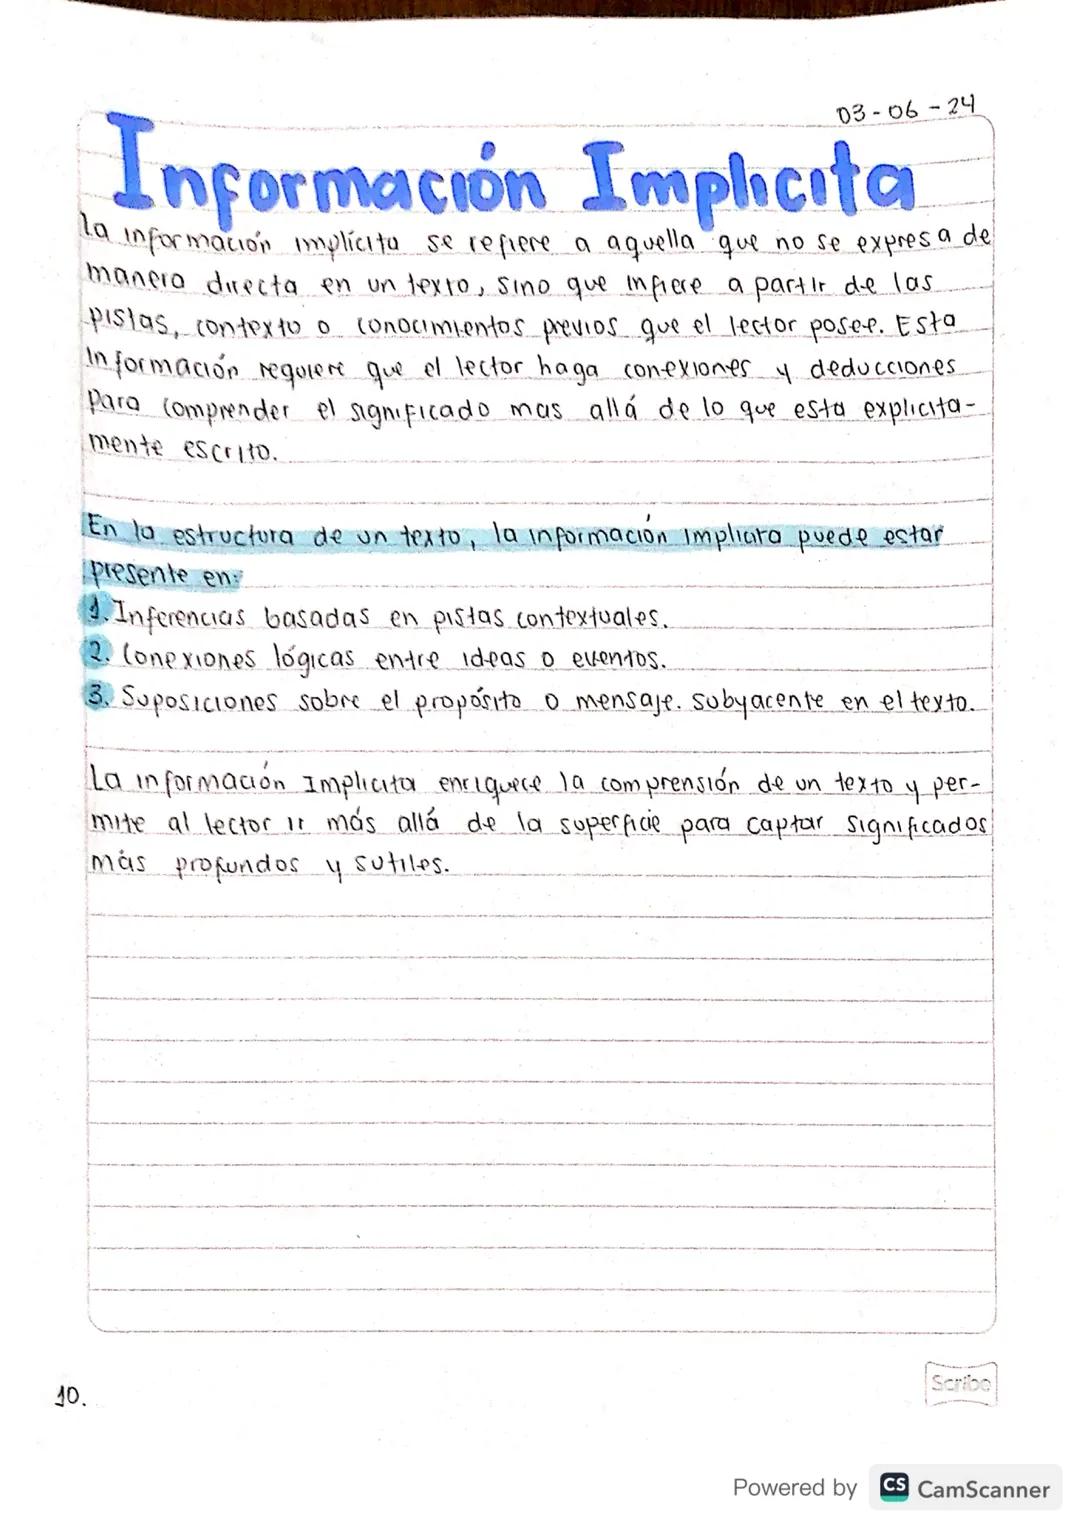 03-06-24
Información Implicita
la información implícita se refiere a aquella que no se expresa de
manera directa en un texto, sino que infiere a partir de las
pistas, contexto o conocimientos previos que el lector posee. Esta
Información requiere que el lector haga conexiones y deducciones
para comprender el significado mas allá de lo que esta explicita-
mente escrito.
En la estructura de un texto, la información implicita puede estar
presente en:
1. Inferencias basadas en pistas contextuales.
2. Conexiones lógicas entre ideas o eventos.
3. Suposiciones sobre el propósito o mensaje. subyacente en el texto.
La información Implicita enriquece la comprensión de un texto y per-
mite al lector ir más allá de la superficie para captar significados
más profundos y sutiles.
10.
Scribe
Powered by CS CamScanner